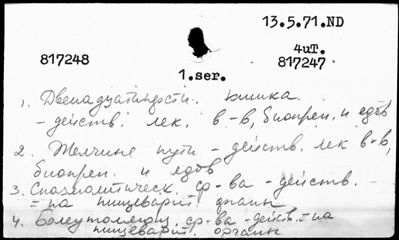 13.5.71.ND
4uT.
817248
817247
1.ser.
1. Двенадцатиперстн. кишка.
- действ. лек. в-в, биопреп. и ядов
2. Желчные пути - действ. лек в-в,
биопреп. и ядов
3. Спазмолитическ. ср-ва - действ.
= на пищеварит. органы
4. Болеутоляющ. ср-ва - действ. = на
пищеварит. органы